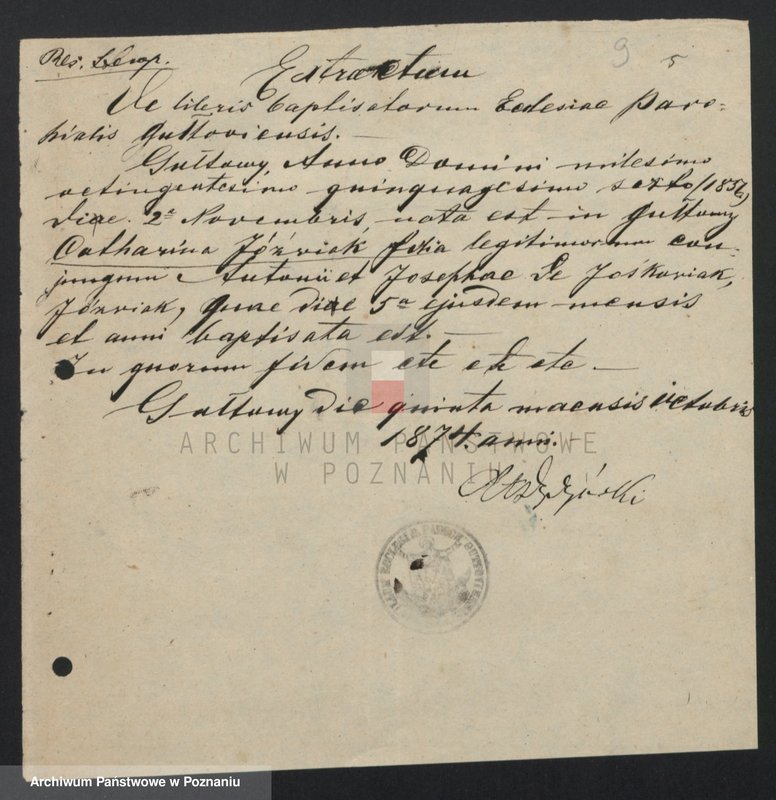 9 5
Extractum
Ve libris baptisatorum Eclesiae Paro-
hialis Gułtoviensis. —
Gułtowy, Anno Domini milesimo
octingentesimo quinquagesimo sexto /1856/
diae. 2ª Novembris nata est in Gułtowy
Catharina Jóźwiak filia legitimorum con-
jungum Antonii et Josephae de Jośkowiak,
Jóźwiak, quae diae 5ª ejusdem mensis
et anni baptisata est. —
In quorum fidem etc etc etc —
Gułtowy die quinta maensis octobris
1874. anni. —
ARCHIWUM PAŃSTWOWE
W POZNANIU
Archiwum Państwowe w Poznaniu